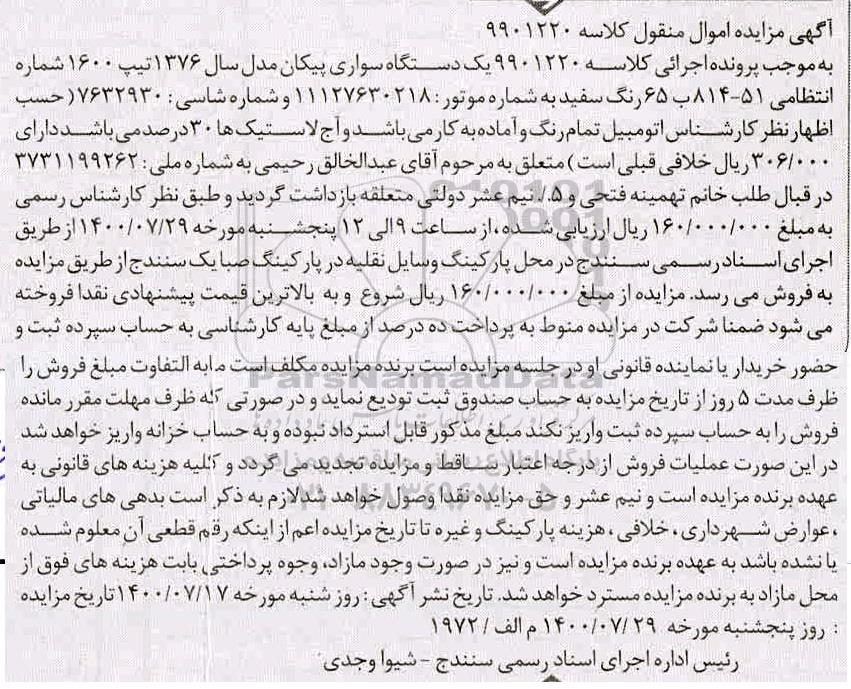 آگهی مزایده اموال منقول کلاسه ۹۹۰۱۲۲۰
به موجب پرونده اجرائی کلاسه ۹۹۰۱۲۲۰ یک دستگاه سواری پیکان مدل سال ۱۳۷۶ تیپ ۱۶۰۰ شماره
انتظامی ۵۱-۸۱۴ب ۶۵ رنگ سفید به شماره موتور: ۱۱۱۲۷۶۳۰۲۱۸ و شماره شاسی: ۷۶۳۲۹۳۰( حسب
اظهار نظر کارشناس اتومبیل تمام رنگ و آماده به کار می باشد و آج لاستیک ها ۳۰درصد می باشد دارای
۳۰۶/۰۰۰ ریال خلافی قبلی است) متعلق به مرحوم آقای عبدالخالق رحیمی به شماره ملی: ۳۷۳۱۱۹۹۲۶۲
در قبال طلب خانم تهمینه فتحی و ۵./. نیم عشر دولتی متعلقه بازداشت گردید و طبق نظر کارشناس رسمی
به مبلغ ۱۶۰/۰۰۰/۰۰۰ ریال ارزیابی شده، از ساعت ۹ الی ۱۲ پنجشنبه مورخه ۱۴۰۰/۰۷/۲۹ از طریق
اجرای اسناد رسمی سنندج در محل پارکینگ وسایل نقلیه در پارکینگ صبا یک سنندج از طریق مزایده
به فروش می رسد. مزایده از مبلغ ۱۶۰/۰۰۰/۰۰۰ ریال شروع و به بالاترین قیمت پیشنهادی نقدا فروخته
می شود ضمنا شرکت در مزایده منوط به پرداخت ده درصد از مبلغ پایه کارشناسی به حساب سپرده ثبت و
حضور خریدار یا نماینده قانونی او در جلسه مزایده است برنده مزایده مکلف است مابه التفاوت مبلغ فروش را
ظرف مدت ۵ روز از تاریخ مزایده به حساب صندوق ثبت تودیع نماید و در صورتی که ظرف مهلت مقرر مانده
فروش را به حساب سپرده ثبت واریز نکند مبلغ مذکور قابل استرداد نبوده و به حساب خزانه واریز خواهد شد
در این صورت عملیات فروش از درجه اعتبار ساقط و مزایده تجدید می گردد و کلیه هزینه های قانونی به
عهده برنده مزایده است و نیم عشر و حق مزایده نقدا وصول خواهد شد لازم به ذکر است بدهی های مالیاتی
،عوارض شهرداری، خلافی، هزینه پارکینگ و غیره تا تاریخ مزایده اعم از اینکه رقم قطعی آن معلوم شده
یا نشده باشد به عهده برنده مزایده است و نیز در صورت وجود مازاد، وجوه پرداختی بابت هزینه های فوق از
محل مازاد به برنده مزایده مسترد خواهد شد. تاریخ نشر آگهی: روز شنبه مورخه ۱۴۰۰/۰۷/۱۷ تاریخ مزایده
: روز پنجشنبه مورخه ۱۴۰۰/۰۷/۲۹ م الف / ۱۹۷۲
رئیس اداره اجرای اسناد رسمی سنندج - شیوا وجدی
ParsNamadData